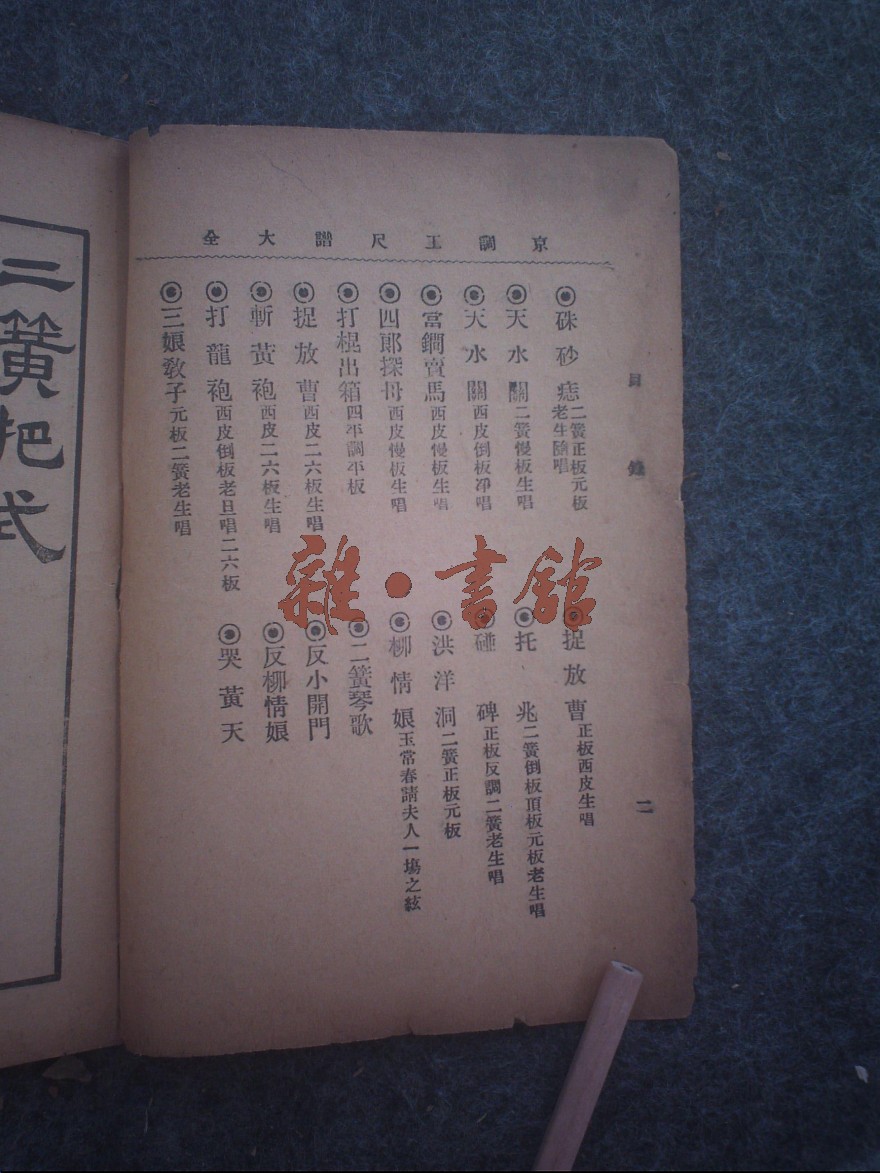 京調工尺譜大全
目錄
二
硃砂痣 二簧正板元板老生唱
天水關 二簧慢板生唱
天水關 西皮倒板淨唱
當鐧賣馬 西皮慢板生唱
四郎探母 西皮慢板生唱
打棍出箱 四平調平板
捉放曹 西皮二六板生唱
斬黃袍 西皮二六板生唱
打龍袍 西皮倒板老旦唱二六板
三娘敎子 元板二簧老生唱
捉放曹 正板西皮生唱
托兆 二簧倒板頂板元板老生唱
碰碑 正板反調二簧老生唱
洪洋洞 二簧正板元板
柳情娘 玉常春請夫人一塲之絃
二簧琴歌
反小開門
反柳情娘
哭黃天
二簧把式
雜·書館